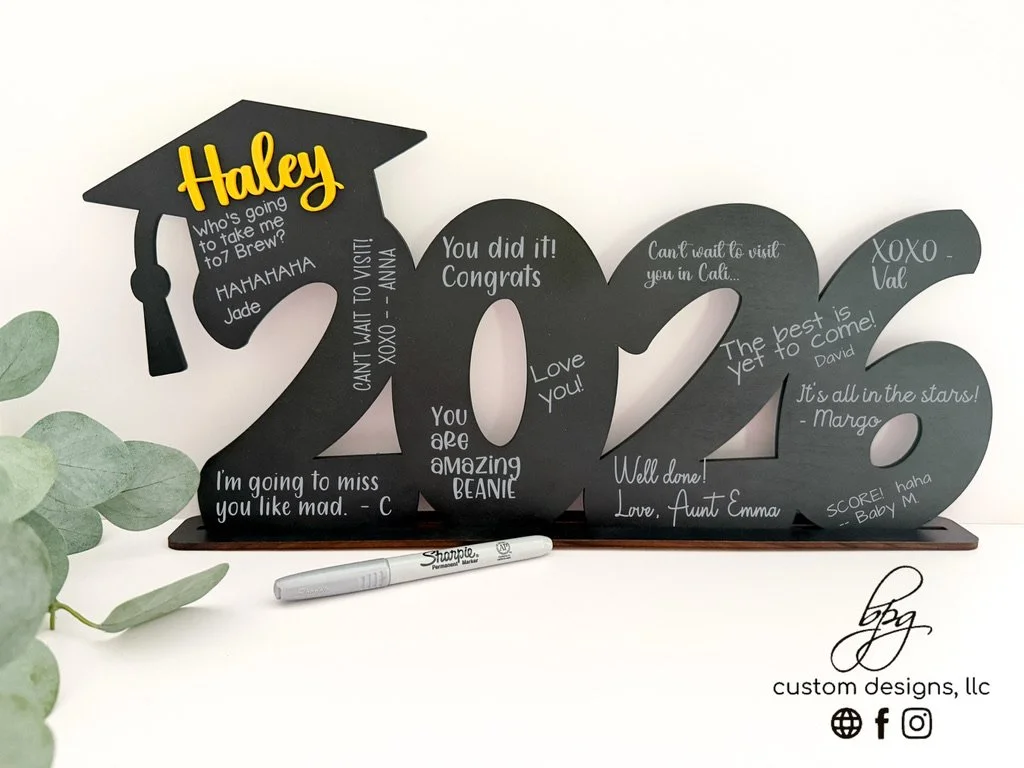 Haley
Who's going
to take me
to7 Brew?
HAHAHAHA
Jade
CAN'T WAIT TO VISIT!
XOXO - ANNA
I'm going to miss
you like mad. - C
You did it!
Congrats
Love
you!
You
are
amazing
BEANIE
Can't wait to visit
you in Cali...
The best is
yet to come!
David
Well done!
Love, Aunt Emma
XOXO -
Val
It's all in the stars!
- Margo
SCORE! haha
-- Baby M
Sharpie
Permanent Marker
bpg
custom designs, llc